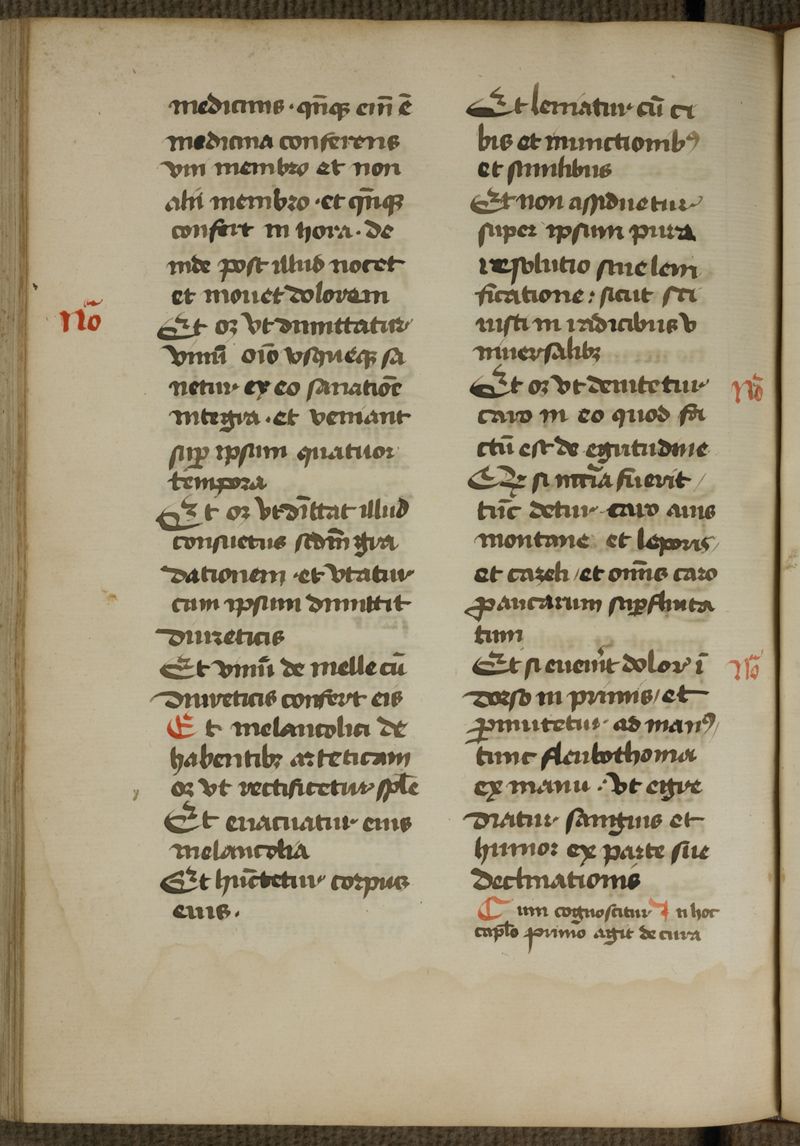 medicinis · qñq̃ em̃ ẽ
medicina conferens
vni membro et non
alii membro · et qñq̃
confert in hora · de
inde post illud nocet
et mouet dolorem
Nõ
Et oꝫ vt dimittatur
vinũ oĩo vsqueqũe sa
netur ex eo sanatiõe
integra · et veniant
sup̃ ipsum quatuor
tempora
Et oꝫ vt dĩttat illud
consuetus scdm̃ gra
dationem · et vtatur
cum ipsum dimittit
diureticis
Et vinũ de melle cũ
diureticis confert eis
Et melancolici de
habentibꝫ arteticam
oꝫ vt rectificetur spl̃e
Et euacuatur eius
melancolia
Et hũctetur corpus
eius ·
Et leniatur cũ ci
bis et inunctionibꝰ
et similibus
Et non assiduetur
super ipsum pura
resolutio sine leni
ficatione : sicut sci
uisti in radicibus v
niuersalibꝫ
Et oꝫ vt deuitetur
Nõ
caro in eo quod fa
ctũ est de egritudine
Et si nc̃c̃ia fuerit /
tũc detur caro auis
montane et leporis /
et cazeli / et om̃is caro
paucarum sup̃fluita
tum
Et si euenit dolor ĩ
Nõ
dorso in primis / et
ꝑmutetur ad manꝰ /
tunc fleubothoma
ex manu · Vt egre
diatur sanguis et
humor ex parte sue
declinationis
Cum cognoscitur In hoc
capl̃o primo agit de cura